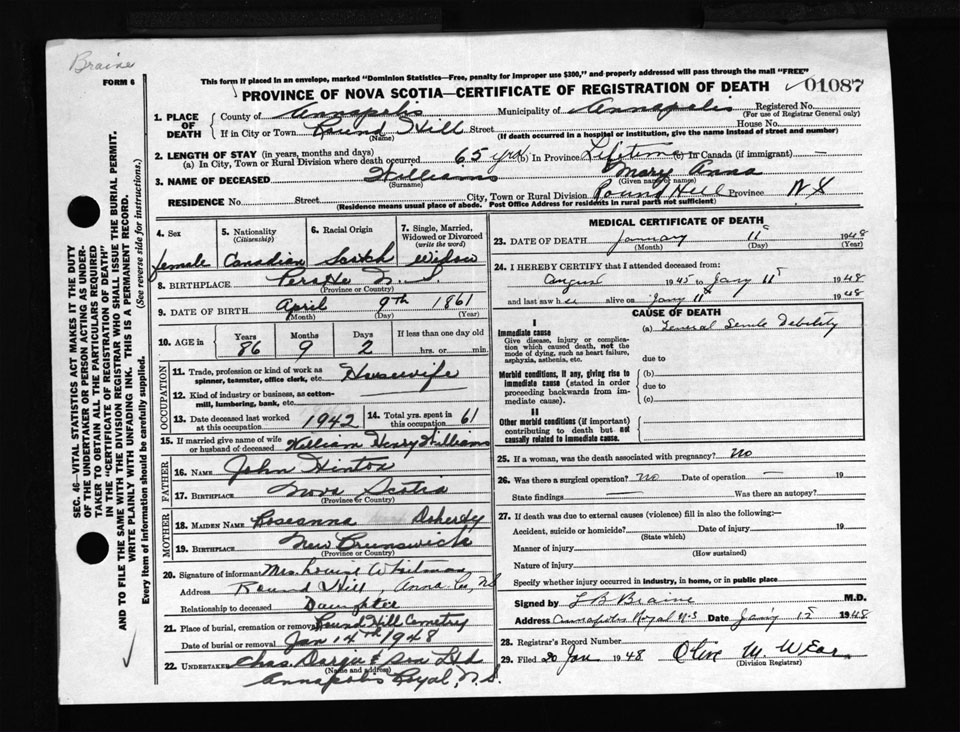 Braine
FORM 6
This form if placed in an envelope, marked "Dominion Statistics—Free, penalty for improper use $300," and properly addressed will pass through the mail "FREE"
PROVINCE OF NOVA SCOTIA—CERTIFICATE OF REGISTRATION OF DEATH 01087
1. PLACE OF DEATH County of Annapolis Municipality of Annapolis Registered No.
(For use of Registrar General only)
If in City or Town Round Hill Street House No.
(Name) (If death occurred in a hospital or institution, give the name instead of street and number)
2. LENGTH OF STAY (in years, months and days)
(a) In City, Town or Rural Division where death occurred 65 yrs (b) In Province Lifetime (c) In Canada (if immigrant) —
3. NAME OF DECEASED Williams Mary Anna
(Surname) (Given name or name)
RESIDENCE No. Street City, Town or Rural Division Round Hill Province N.S
(Residence means usual place of abode. Post Office Address for residents in rural parts not sufficient)
4. Sex 5. Nationality (Citizenship) 6. Racial Origin 7. Single, Married, Widowed or Divorced (write the word)
female Canadian Scotch Widow
8. BIRTHPLACE N.S.
(Province or Country)
9. DATE OF BIRTH April 9th 1861
(Month) (Day) (Year)
10. AGE in Years Months Days If less than one day old
86 9 2 hrs. or min.
OCCUPATION
11. Trade, profession or kind of work as spinner, teamster, office clerk, etc. Housewife
12. Kind of industry or business, as cotton-mill, lumbering, bank, etc.
13. Date deceased last worked at this occupation 1942 14. Total yrs. spent in this occupation 61
15. If married give name of wife or husband of deceased William Henry Williams
FATHER
16. NAME John Hinton
17. BIRTHPLACE Nova Scotia
(Province or Country)
MOTHER
18. MAIDEN NAME Roseanna Doherty
19. BIRTHPLACE New Brunswick
(Province or Country)
20. Signature of informant Mrs. Louise Whitman
Address Round Hill Anna. Co, N.S.
Relationship to deceased Daughter
21. Place of burial, cremation or removal Round Hill Cemetry
Date of burial or removal Jan 14th 1948
22. UNDERTAKER Chas. Dargie & Son Ltd
(Name and Address)
Annapolis Royal, N.S.
MEDICAL CERTIFICATE OF DEATH
23. DATE OF DEATH January 11 1948
(Month) (Day) (Year)
24. I HEREBY CERTIFY that I attended deceased from:
August 1945 to Jany 11 1948
and last saw her alive on Jany 11 1948
CAUSE OF DEATH
I
Immediate cause (a) General Senile Debility
Give disease, injury or complication which caused death, not the mode of dying, such as heart failure, asphyxia, asthenia, etc.
due to
Morbid conditions, if any, giving rise to immediate cause (stated in order proceeding backwards from immediate cause).
(b)
due to
(c)
II
Other morbid conditions (if important) contributing to death but not causally related to immediate cause.
25. If a woman, was the death associated with pregnancy? No
26. Was there a surgical operation? No Date of operation — 19
State findings — Was there an autopsy?
27. If death was due to external causes (violence) fill in also the following:—
Accident, suicide or homicide? Date of injury 19
(State which)
Manner of injury
(How sustained)
Nature of injury
Specify whether injury occurred in industry, in home, or in public place
Signed by L B Braine M.D.
Address Annapolis Royal N.S Date Jany 15 1948
28. Registrar's Record Number
29. Filed 20 Jan 1948 Olive M. Wear
(Division Registrar)
SEC. 46—VITAL STATISTICS ACT MAKES IT THE DUTY
OF THE UNDERTAKER OR PERSON ACTING AS UNDER-
TAKER TO OBTAIN ALL THE PARTICULARS REQUIRED
IN THE "CERTIFICATE OF REGISTRATION OF DEATH"
AND TO FILE THE SAME WITH THE DIVISION REGISTRAR WHO SHALL ISSUE THE BURIAL PERMIT.
WRITE PLAINLY WITH UNFADING INK. THIS IS A PERMANENT RECORD.
Every item of information should be carefully supplied. (See reverse side for instructions.)